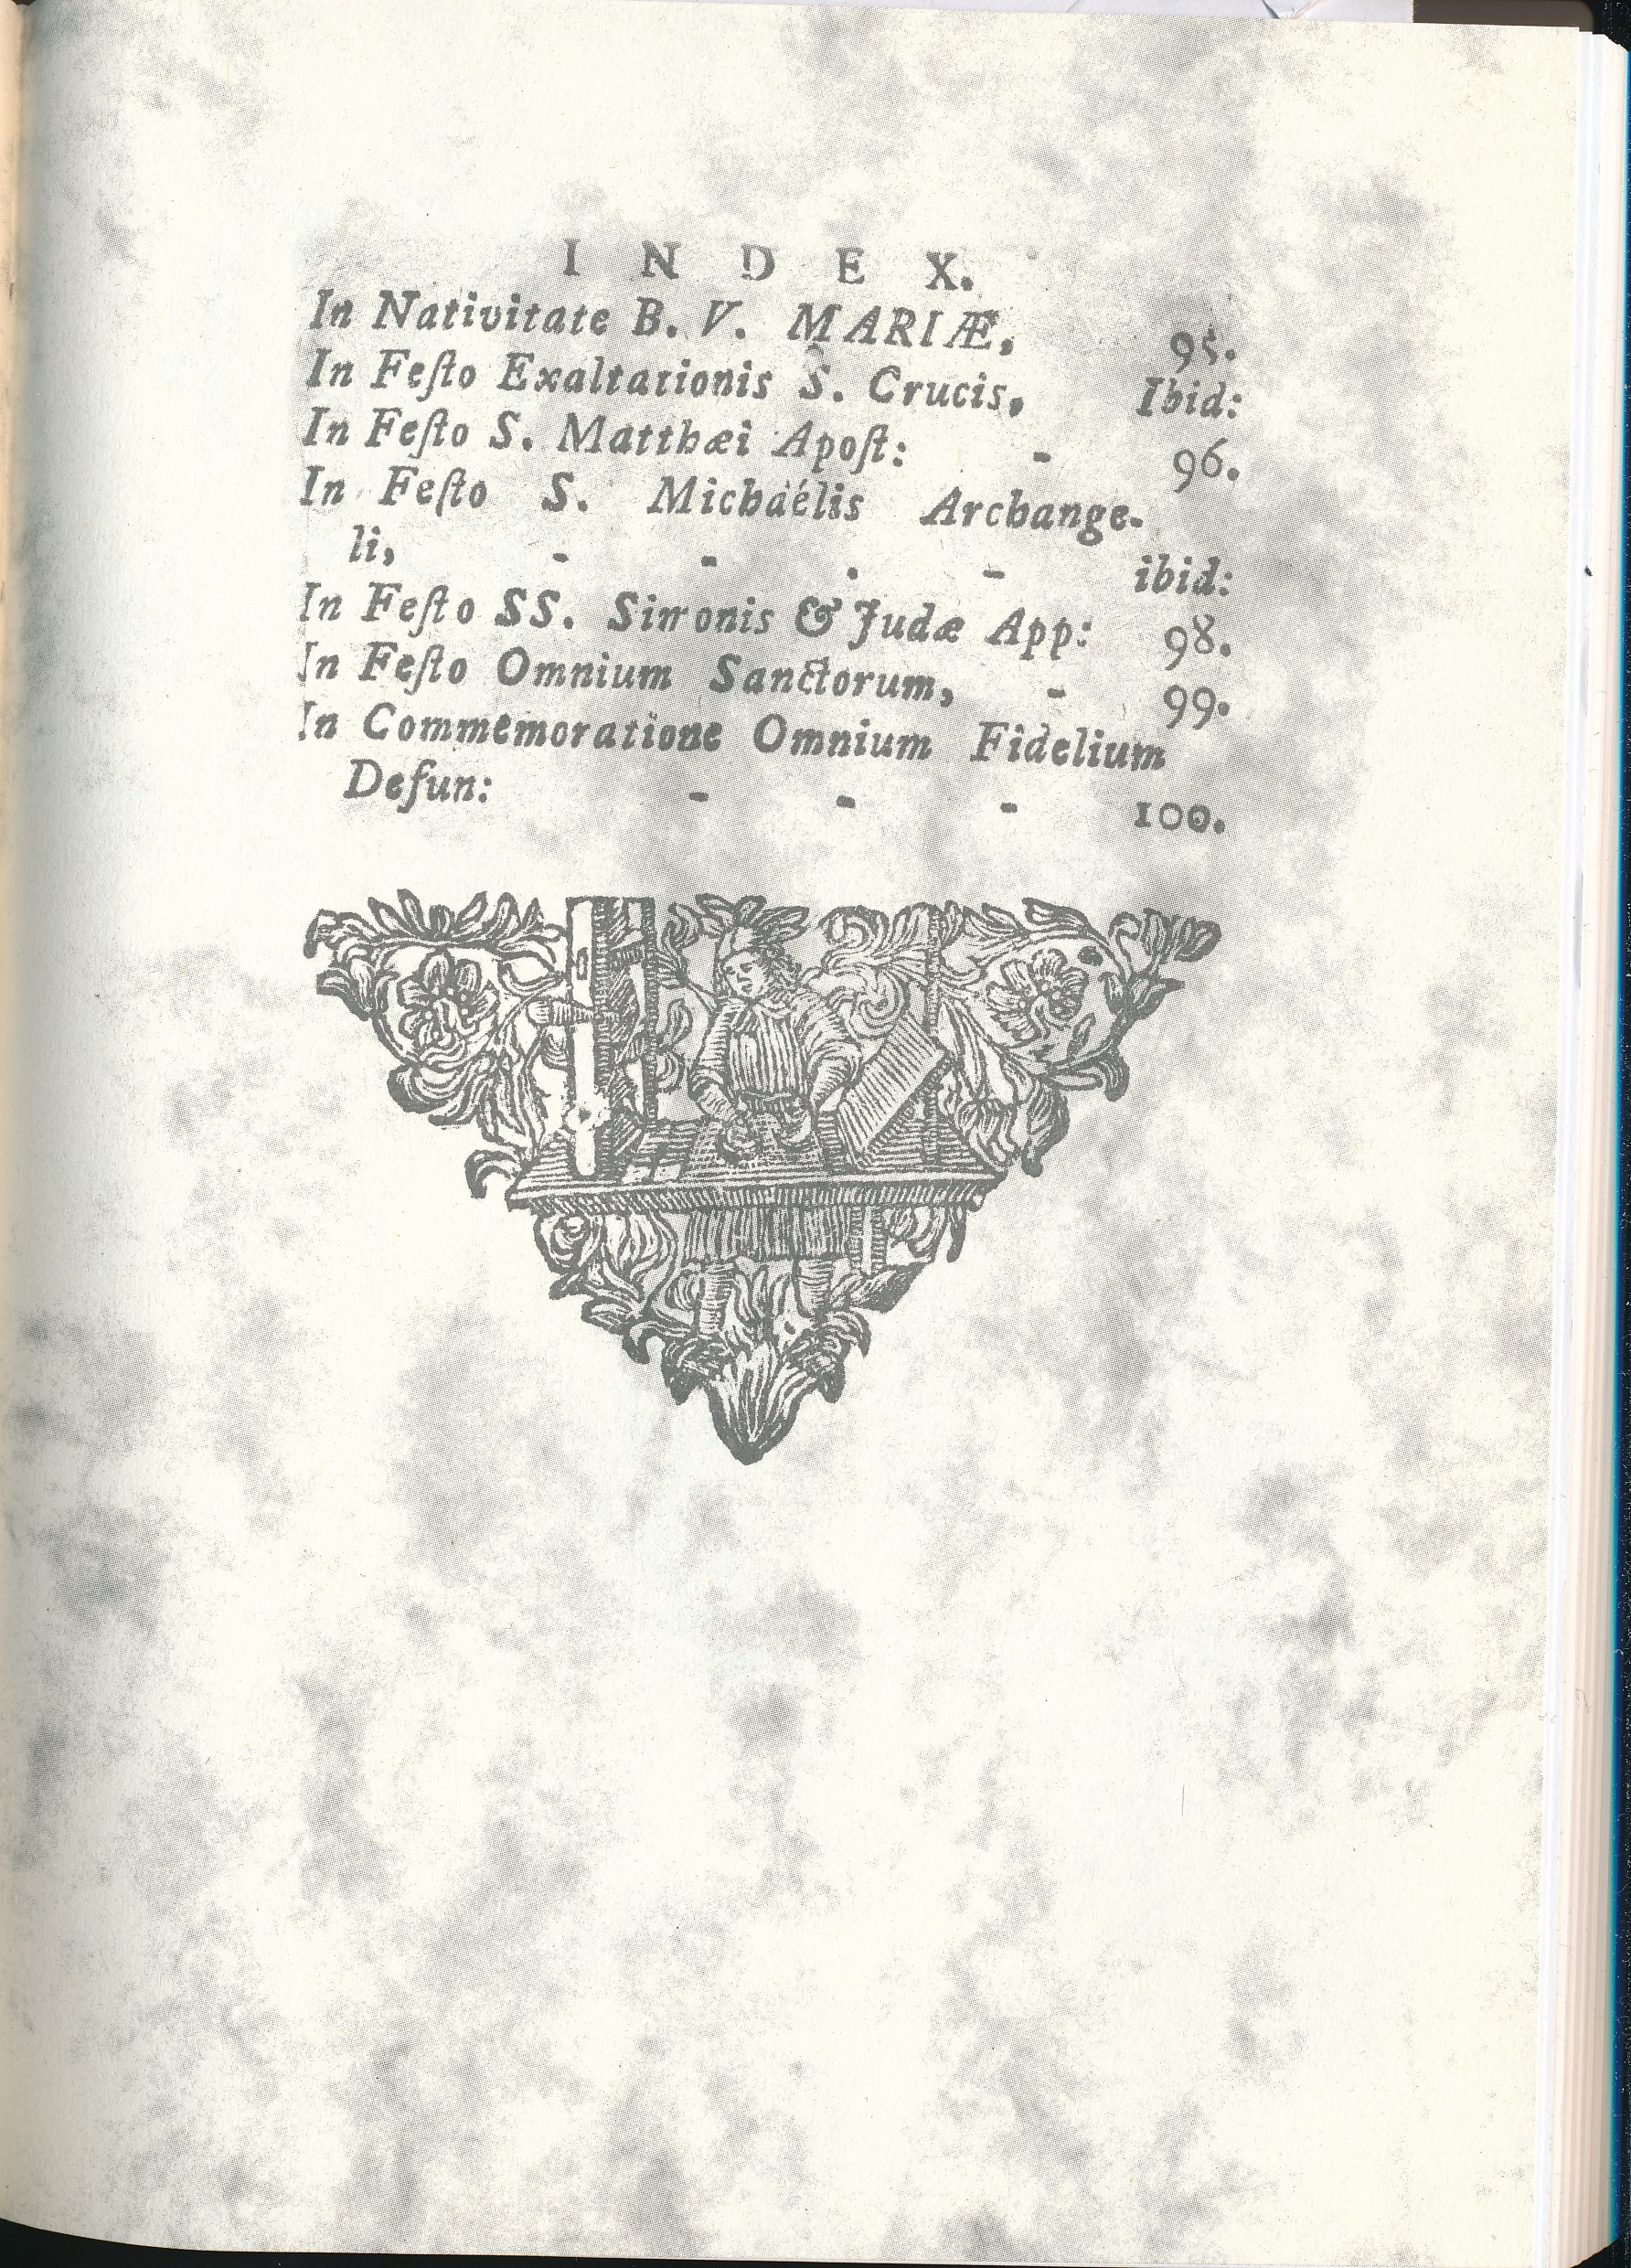 I N D E X.
In Nativitate B. V. MARIÆ, 95.
In Feſto Exaltationis S. Crucis, Ibid:
In Feſto S. Matthæi Apoſt: - 96.
In Feſto S. Michaélis Archange-
li, - - . - ibid:
In Feſto SS. Simonis & Judæ App: 98.
In Feſto Omnium Sanctorum, - 99.
In Commemoratione Omnium Fidelium
Defun: - - - 100.